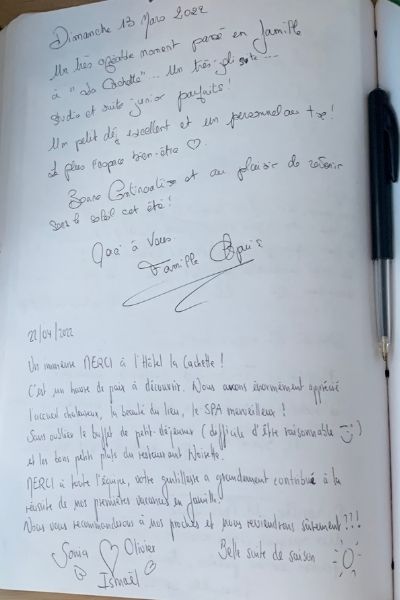 Dimanche 13 Mars 2022
Un très agréable moment passé en famille
à "La Cachette"... Un très joli site...
Studio et suite junior parfaits!
Un petit déj excellent et un personnel au t☀p!
Le plus l'espace bien-être ♡.
Bonne Continuation et au plaisir de revenir
sous le soleil cet été!
à Vous.
Famille
22/04/2022
Un immense MERCI à l'Hôtel la Cachette!
C'est un havre de paix à découvrir. Nous avons énormément apprécié
l'accueil chaleureux, la beauté du lieu, le SPA merveilleux!
Sans oublier le buffet de petit-déjeuner (difficile d'être raisonnable)
et les bons petits plats du restaurant Noisette.
MERCI à toute l'équipe, votre gentillesse a grandement contribué à la
réussite de nos premières vacances en famille.
Nous vous recommanderons à nos proches et nous reviendrons sûrement!!!
Sonia ♡ Olivier
Ismaël
Belle suite de saison